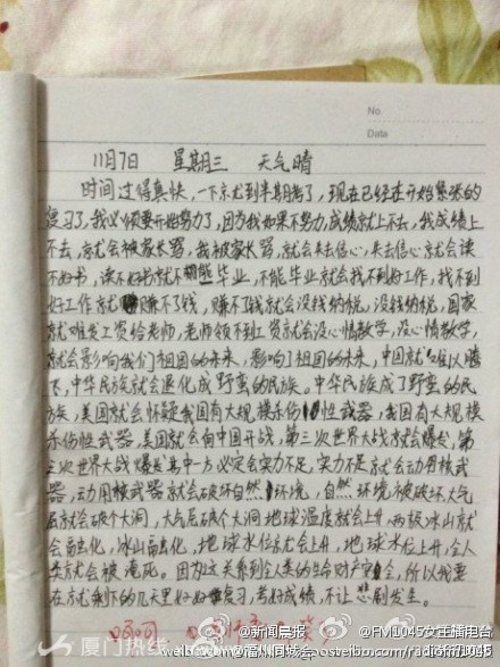 No.
Data
11月7日 星期三 天气晴
时间过得真快，一下就到半期考了，现在已经在开始紧张的
复习了，我必须要开始努力了，因为我如果不努力，成绩就上不去，我成绩上
不去，就会被家长骂，我被家长骂，就会失去信心，失去信心就会读
不好书，读不好书就不能毕业，不能毕业就会找不到好工作，找不到
好工作就赚不了钱，赚不了钱就会没钱纳税，没钱纳税，国家
就难发工资给老师，老师领不到工资就会没心情教学，没心情教学，
就会影响我们祖国的未来，影响了祖国的未来，中国就难以腾
飞，中华民族就会退化成野蛮的民族。中华民族成了野蛮的民
族，美国就会怀疑我国有大规模杀伤性武器，我国有大规模
杀伤性武器，美国就会向中国开战，第三次世界大战就会爆发，第
三次世界大战爆发其中一方必定会实力不足，实力不足就会动用核武
器，动用核武器就会破坏自然环境，自然环境被破坏，大气
层就会破个大洞，大气层破个大洞地球温度就会上升，两极冰山就
会融化，冰山融化，地球水位就会上升，地球水位上升，全人
类就会被淹死。因为这关系到全人类的生命财产安全，所以我要
在就剩下的几天里好好复习，考好成绩，不让悲剧发生。
呵呵
厦门热线
@新闻晨报
@FM1045女主播电台
@福州同城会
weibo.com/radiofm1045